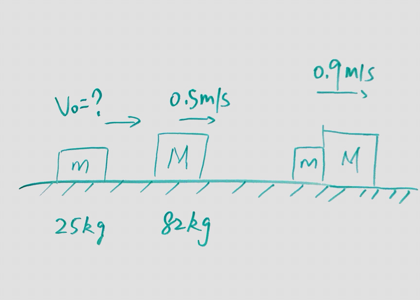 V₀=?
0.5m/s
0.9m/s
m
M
m
M
25kg
82kg